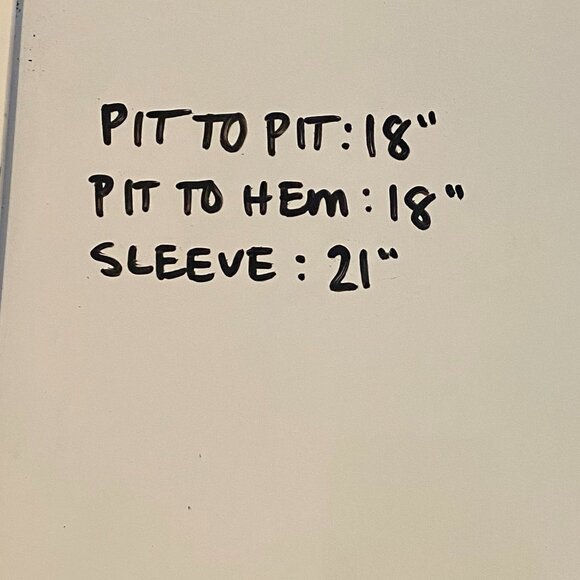 PIT TO PIT: 18"
PIT TO HEM: 18"
SLEEVE: 21"